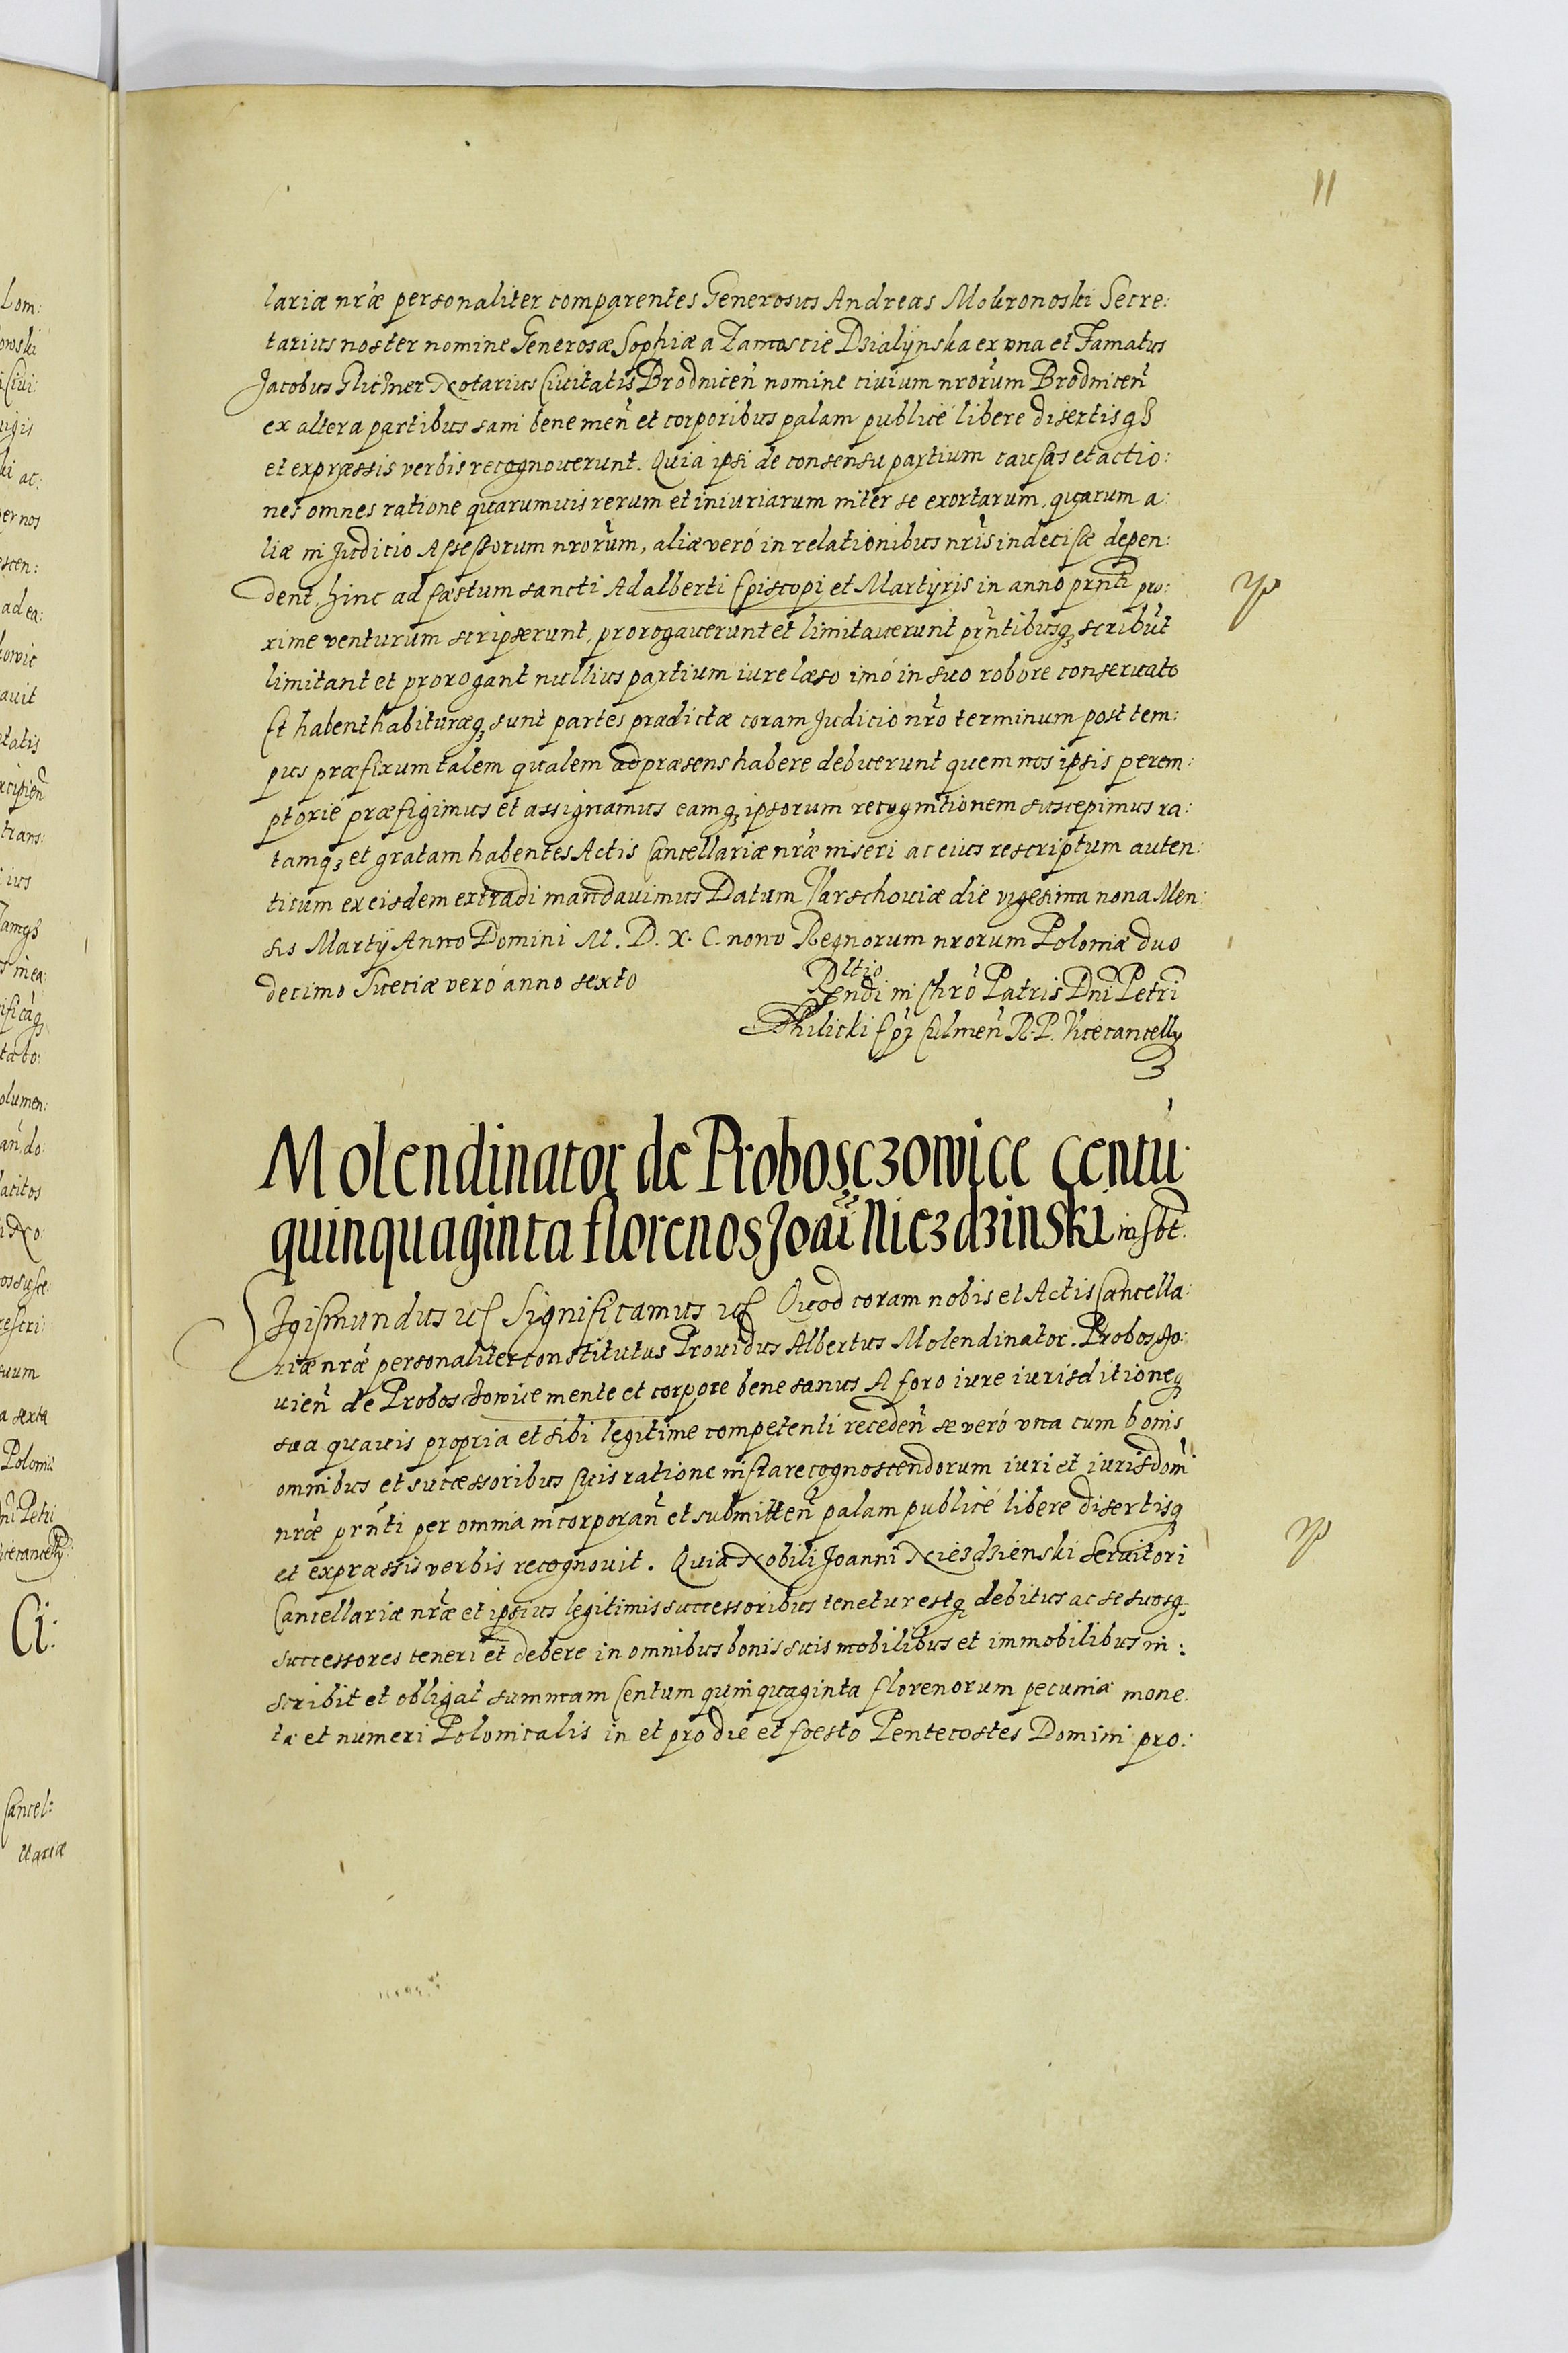 11
lariæ nr̃æ personaliter comparentes Generosus Andreas Mokronoski Secre:
tarius noster nomine Generosæ Sophiæ a Zamoscie Dzialÿnska ex vna et Famatus
Jacobus Glichner Notarius Ciuitatis Brodnicen̄ nomine ciuium nrõrum Brodnicen̄
ex altera partibus sani bene men̄ et corporibus palam publicè libere disertisqȝ
et expræssis verbis recognouerunt. Quia ipsi de consensu partium causas et actio:
nes omnes ratione quarumuis rerum et iniuriarum inter se exortarum, quarum a:
liæ in Judicio Assessorum nrõrum, aliæ verò in relationibus nr̃is indecisæ depen:
dent, hinc ad fæstum sancti Adalberti Episcopi et Martÿris in anno prn̄ti pro:
xime venturum scripserunt, prorogauerunt et limitauerunt prn̄tibusqȝ scribūt
limitant et prorogant nullius partium iure læso imò in suo robore conseruato
Et habent habituræqȝ sunt partes prædictæ coram Judicio nrõ terminum post tem:
pus præfixum talem qualem ad præsens habere debuerunt quem nos ipsis perem:
ptoriè præfigimus et assignamus eamqȝ ipsorum recognitionem suscepimus ra:
tamqȝ et gratam habentes Actis Cancellariæ nr̃æ inseri ac eius rescriptum auten:
ticum ex eisdem extradi mandauimus Datum Varschouiæ die vigesima nona Men:
sis Martÿ Anno Domini M. D. X. C. nono Regnorum nrorum Poloniæ duo
decimo Sueciæ verò anno sexto
Rltio
Rn̄di in Chrõ Patris Dn̄i Petri
Thilicki Epi Culmen̄ R. P. Vicecancellÿ
Molendinator de Probosczowice Centũ
quinquaginta florenos Joañi Niezdzinski inscbt.
Sigismundus ucſ Significamus ucſ Quod coram nobis et Actis Cancella:
riæ nr̃æ personaliter constitutus Prouidus Albertus Molendinator. Probosczo:
uien̄ de Probosczowice mente et corpore bene sanus A foro iure iurisditioneqȝ
sua quauis propria et sibi legitime competenti receden̄ se verò vna cum bonis
omnibus et successoribus suis ratione infra recognoscendorum iuri et iurisdom̄
nr̃æ prn̄ti per omnia incorporan̄ et submitten̄ palam publicè libere disertisqȝ
et expræssis verbis recognouit. Quia Nobili Joanni Niezdzienski Seruitori
Cancellariæ nr̃æ et ipsius legitimis successoribus tenetur estqȝ debitus ac se suosqȝ
successores teneri et debere in omnibus bonis suis mobilibus et immobilibus in:
scribit et obligat summam Centum quinquaginta florenorum pecuniæ mone:
tæ et numeri Polonicalis in et pro die et foesto Pentecostes Domini pro: